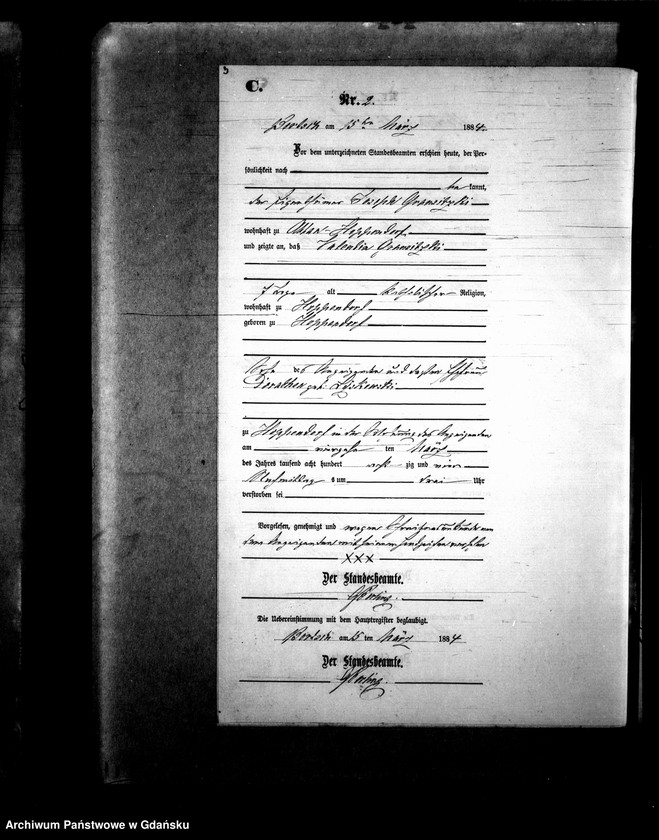 C.
Nr. 2.
am 15ten März 1884.
Vor dem unterzeichneten Standesbeamten erschien heute, der Per-
sönlichkeit nach
be kannt,
der Eigenthümer Joseph
wohnhaft zu Abbau-Hoppendorf
und zeigte an, daß Valentin
alt katholischer Religion,
wohnhaft zu Hoppendorf
geboren zu Hoppendorf
Sohn des Anzeigenden und dessen Ehefrau
Dorothea geb.
zu Hoppendorf in der Wohnung des Anzeigenden
am vierzehn ten März
des Jahres tausend acht hundert acht zig und vier
Nachmittag s um drei Uhr
verstorben sei
Vorgelesen, genehmigt und wegen Schreibensunkunde von
dem Anzeigenden mit seinem Handzeichen versehen
XXX
Der Standesbeamte.
Die Uebereinstimmung mit dem Hauptregister beglaubigt.
am 15 ten März 1884
Der Standesbeamte.
Archiwum Państwowe w Gdańsku